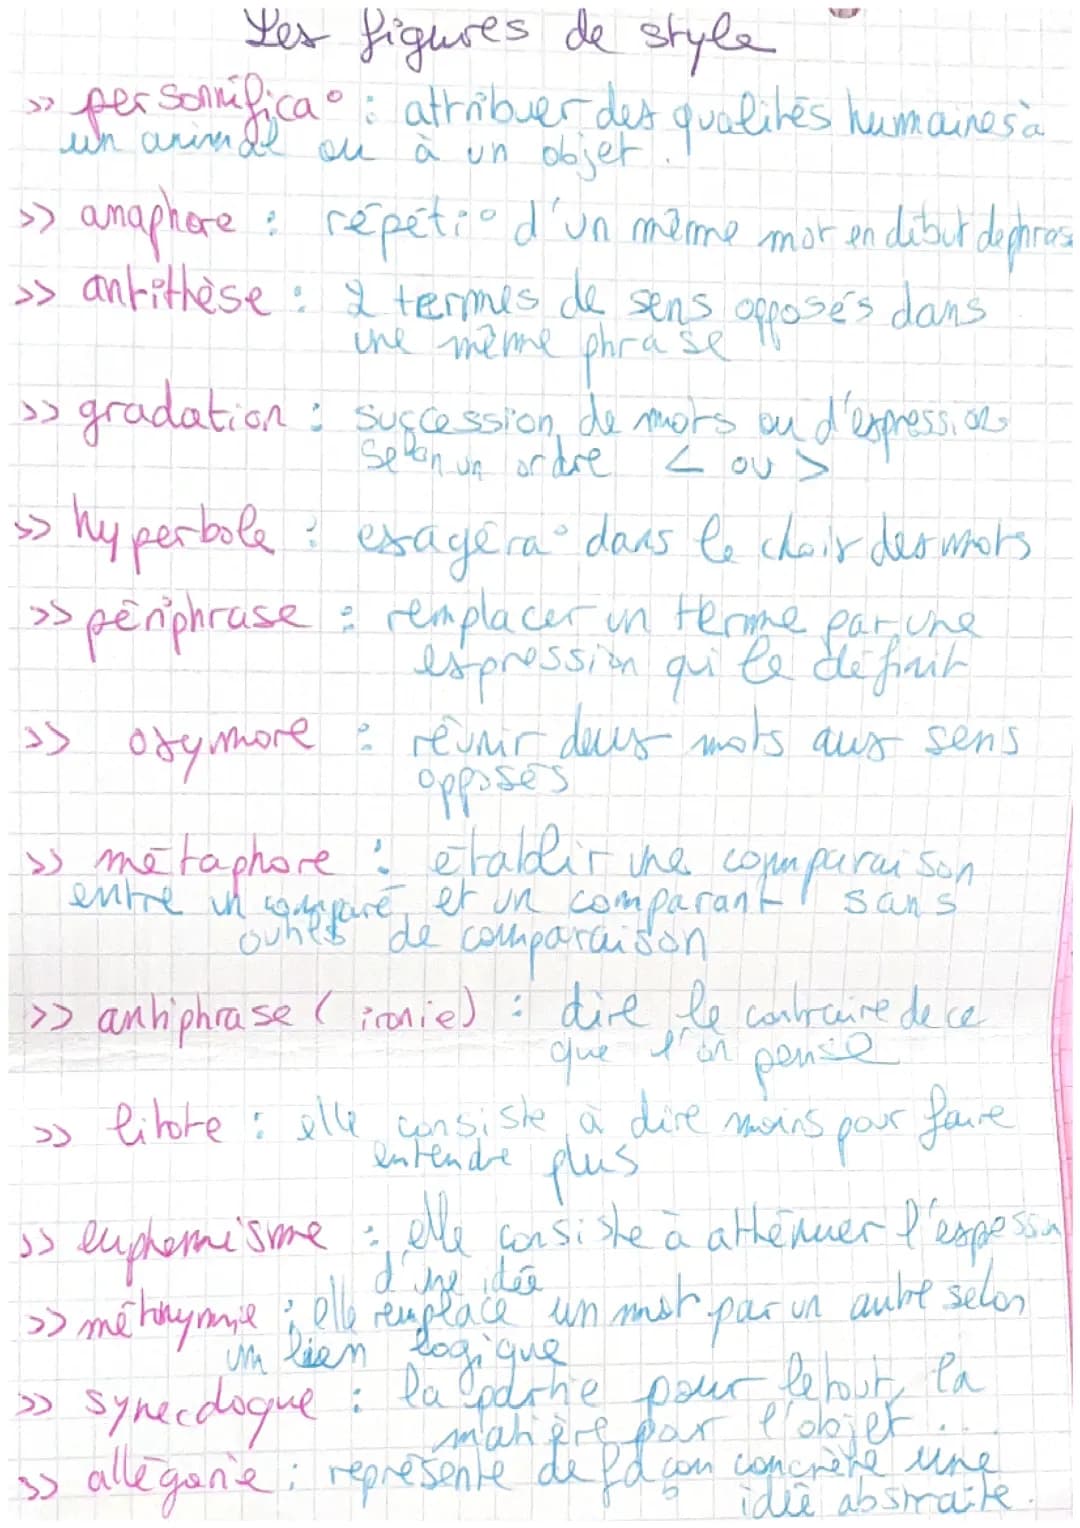 Les figures de style
>> personnifica° : attribuer des qualités humaines à
un animal ou à un objet.
>> anaphore : répéti° d'un même mot en début de phrase
>> antithèse : 2 termes de sens opposés dans
une même phrase
>> gradation : succession de mots ou d'expressions
selon un ordre < ou >
>> hyperbole : exagéra° dans le choix des mots
>> périphrase : remplacer un terme par une
expression qui le définit
>> oxymore : réunir deux mots aux sens
opposés
>> métaphore : établir une comparaison
entre un comparé et un comparant sans
outils de comparaison
>> antiphrase (ironie) : dire le contraire de ce
que l'on pense
>> litote : elle consiste à dire moins pour faire
entendre plus
>> euphemisme : elle consiste à atténuer l'expession
d'une idée
>> métonymie : elle remplace un mot par un autre selon
un lien logique
>> synecdoque : la partie pour le tout, la
matière pour l'objet ...
>> allégorie : représente de façon concrète une
idée abstraite.